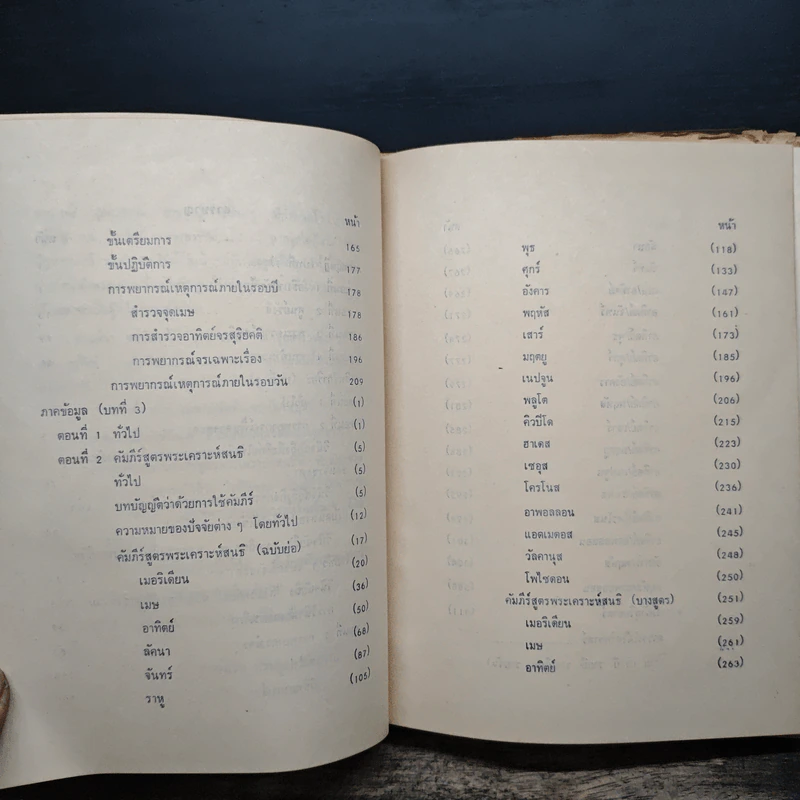 หน้า
ขั้นเตรียมการ 165
ขั้นปฏิบัติการ 177
การพยากรณ์เหตุการณ์ภายในรอบปี 178
สำรวจจุดเมษ 178
การสำรวจอาทิตย์จรสุริยคติ 186
การพยากรณ์จรเฉพาะเรื่อง 196
การพยากรณ์เหตุการณ์ภายในรอบวัน 209
ภาคข้อมูล (บทที่ 3) (1)
ตอนที่ 1 ทั่วไป (1)
ตอนที่ 2 คัมภีร์สูตรพระเคราะห์สนธิ (5)
ทั่วไป (5)
บทบัญญัติว่าด้วยการใช้คัมภีร์ (5)
ความหมายของปัจจัยต่าง ๆ โดยทั่วไป (12)
คัมภีร์สูตรพระเคราะห์สนธิ (ฉบับย่อ) (17)
เมอริเดียน (20)
เมษ (36)
อาทิตย์ (50)
ลัคนา (68)
จันทร์ (87)
ราหู (105)
หน้า
พุธ (118)
ศุกร์ (133)
อังคาร (147)
พฤหัส (161)
เสาร์ (173)
มฤตยู (185)
เนปจูน (196)
พลูโต (206)
คิวปิโด (215)
ฮาเดส (223)
เซอุส (230)
โครโนส (236)
อาพอลลอน (241)
แอดเมตอส (245)
วัลคานุส (248)
โพไซดอน (250)
คัมภีร์สูตรพระเคราะห์สนธิ (บางสูตร) (251)
เมอริเดียน (259)
เมษ (261)
อาทิตย์ (263)